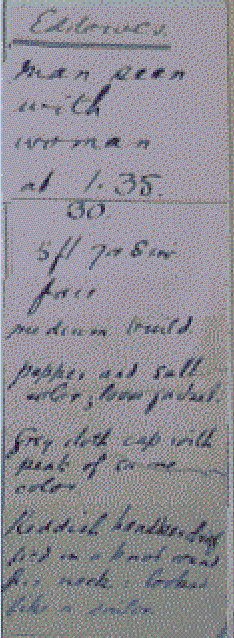 Eddowes.
Man seen
with
woman
at 1.35.
30
5 ft 7 or 8 in
fair
medium build
pepper and salt
color, loose jacket.
Grey cloth cap with
peak of same
color
Reddish handkerchief
tied in a knot round
his neck: looked
like a sailor